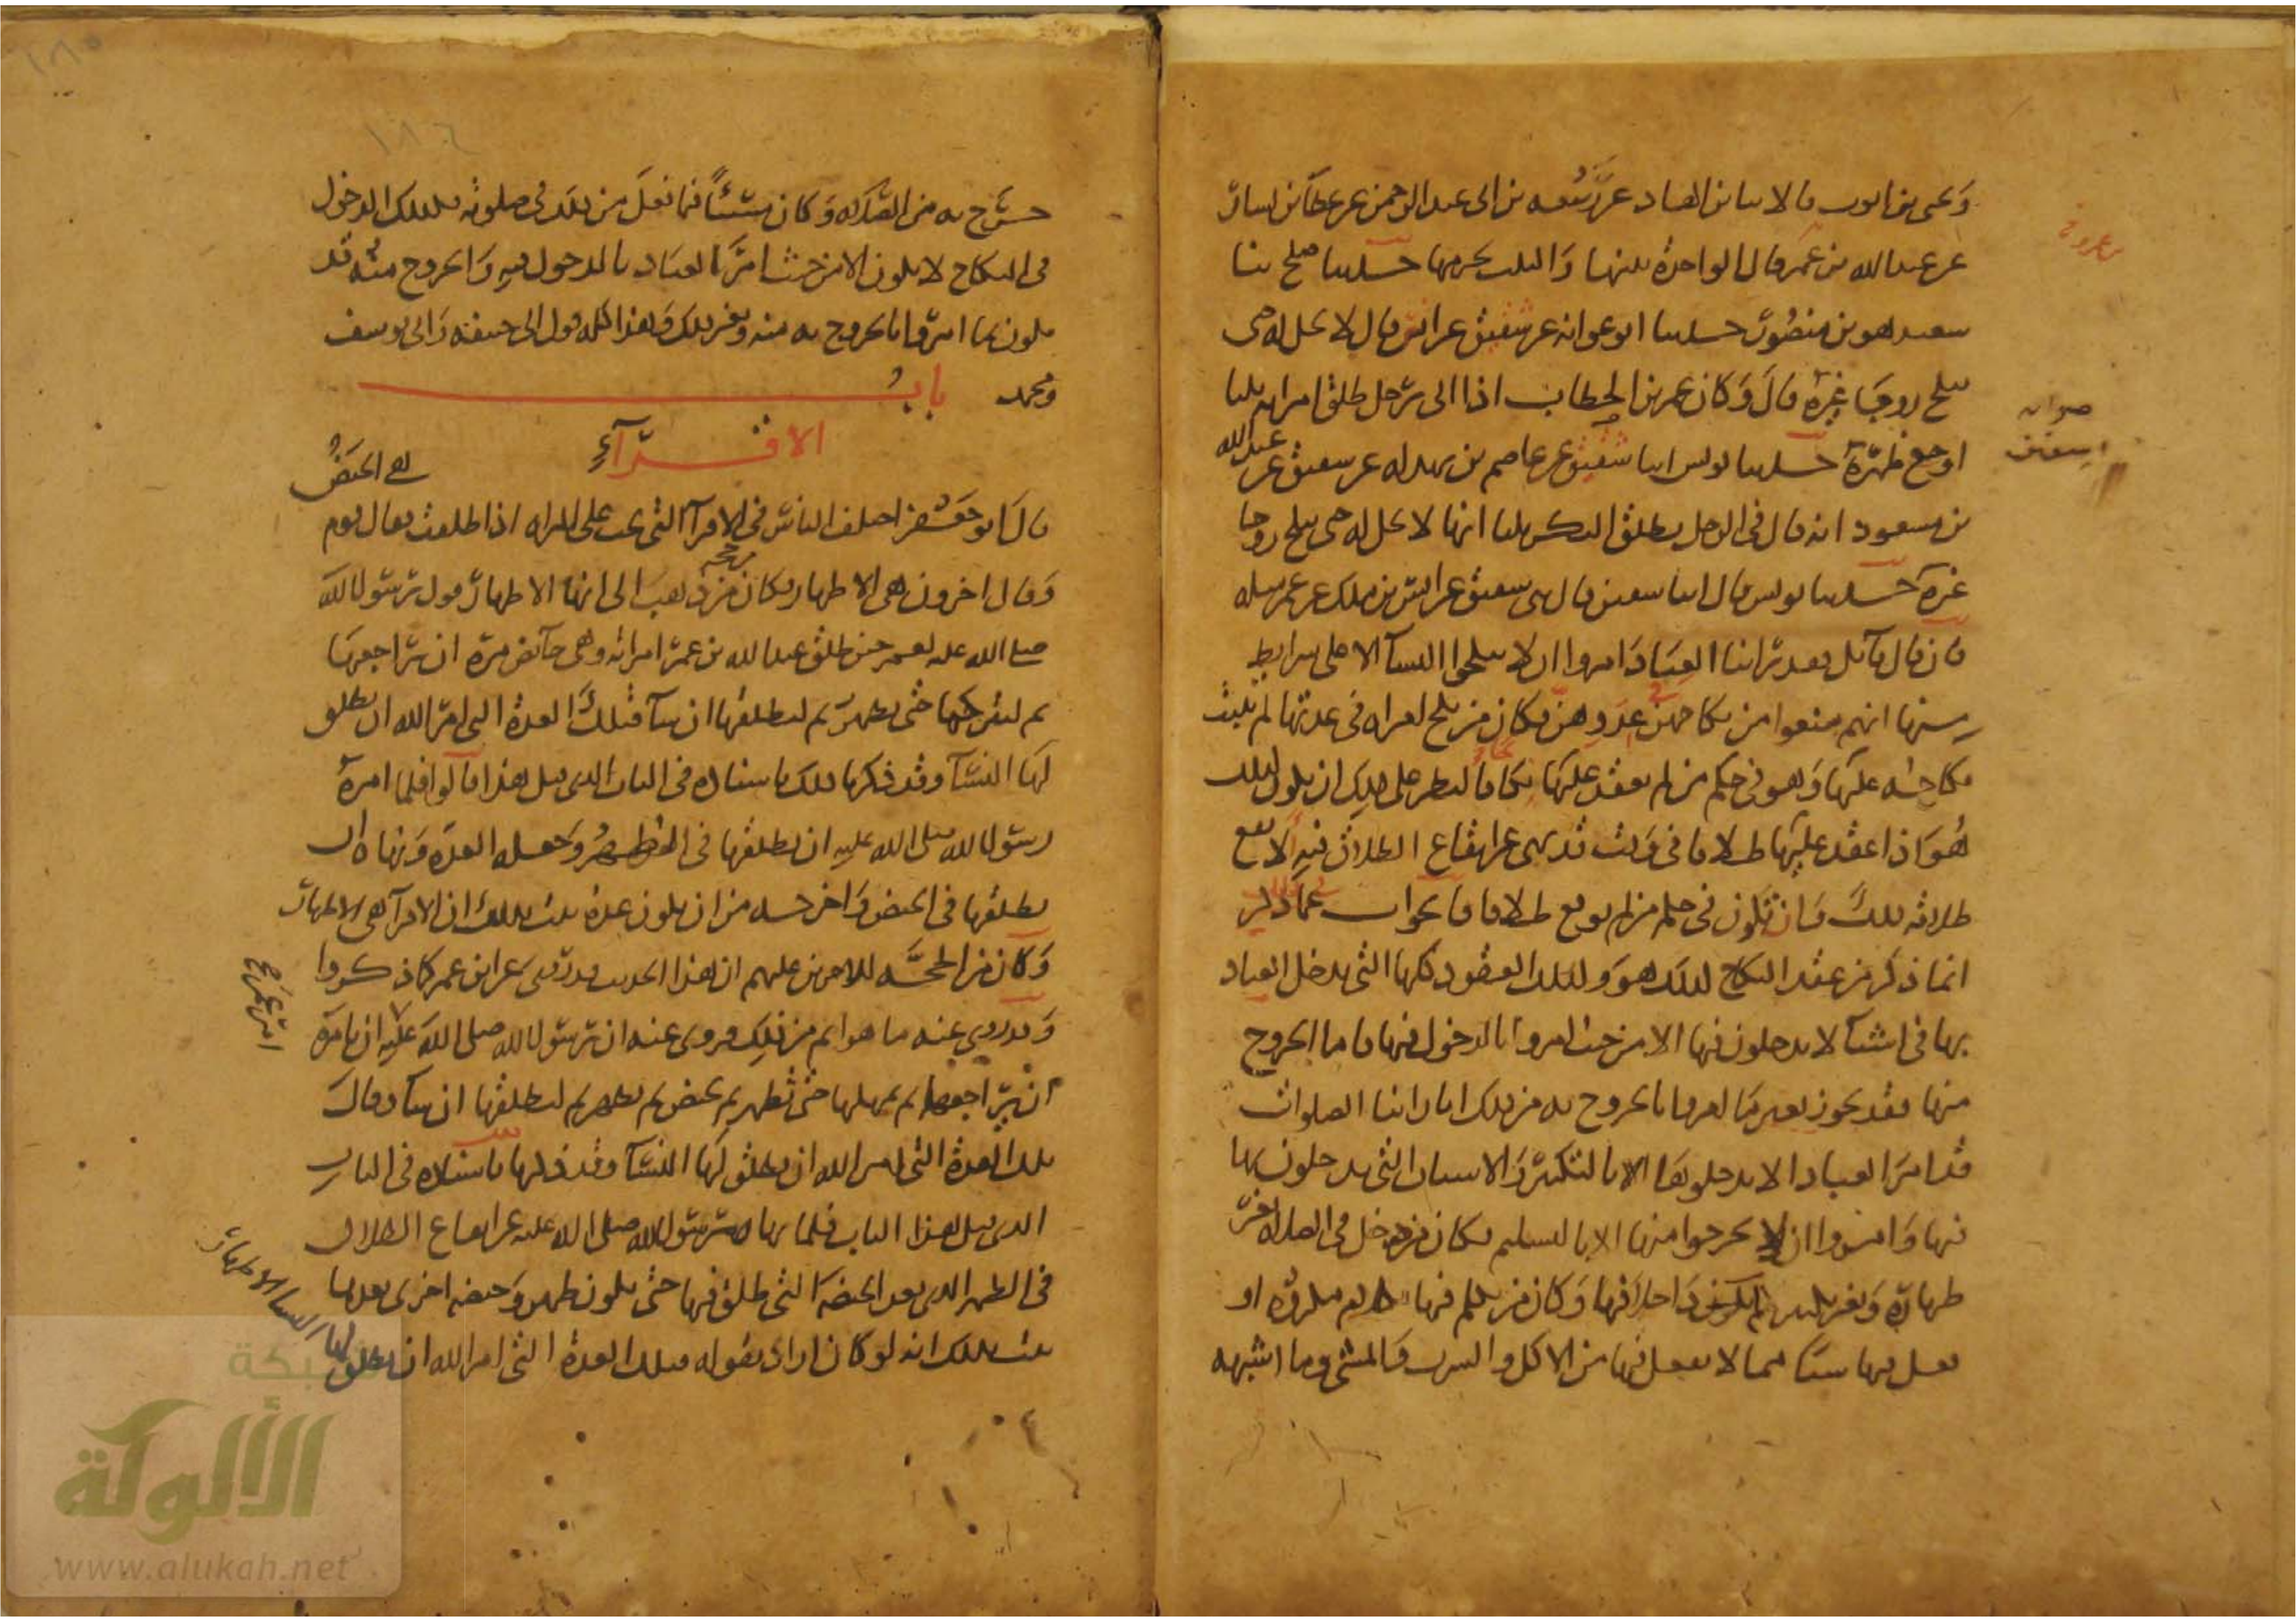 ويحيى بن ايوب قالا ثنا ابن الهاد عن ربيعة بن ابي عبد الرحمن عن عطا بن يسار
عن عبد الله بن عمر قال الواحدة تبينها والثلث تحرمها حدثنا صلح ثنا
سعيد هو بن منصور حدثنا ابو عوانه عن شقيق عن انس قال لا تحل له حتى
تنكح زوجا غيره قال وكان عمر بن الخطاب اذا اتى برجل طلق امراته ثلثا
اوجع ظهره حدثنا يونس انبا سفين عن عاصم بن بهدله عن شقيق عن عبد الله
بن مسعود انه قال في الرجل يطلق البكر ثلثا انها لا تحل له حتى تنكح زوجا
غيره حدثنا يونس قال انبا سفين قال ثنى شقيق عن انس بن ملك عن عمر مثله
فان قال قائل فقد راينا العباد امروا ان لا ينكحوا النسآ الا على شرايط
منها انهم منعوا من نكاحهن في عددهن فكان من نكح امراه في عدتها لم يثبت
نكاحه عليها وهو في حكم من لم يعقد عليها نكاحا فالنظر على ذلك ان يكون كذلك
هو اذا عقد عليها طلاقا في وقت قد نهى عن ايقاع الطلاق فيه الا يقع
طلاقه ذلك وان يكون في حكم من لم يوقع طلاقا فالجواب في ذلك عما ذكر
انما ذكر من عقد النكاح كذلك هو وكذلك العقود كلها التي يدخل العباد
بها في اشيآ لا يدخلون فيها الا من حيث امروا بالدخول فيها فاما الخروج
منها فقد يجوز بغير ما امروا بالخروج به من ذلك انا راينا الصلوات
قد امر العباد الا يدخلوها الا بالتكبير والاسباب التي يدخلون بها
فيها وامروا ان لا يخرجوا منها الا بالتسليم فكان من دخل في الصلاه بغير
طهارة وبغير تكبير لم يكن داخلا فيها وكان من تكلم فيها بكلام مكروه او
فعل فيها شيئا مما لا يفعل فيها من الاكل والشرب والمشي وما اشبهه
خرج به من الصلاه وكان مسيئا فيما فعل من ذلك في صلوته فكذلك الدخول
في النكاح لا يكون الا من حيث امر العباد بالدخول فيه والخروج منه قد
يكون بما امروا بالخروج به منه وبغير ذلك وهذا كله قول ابي حنيفة وابي يوسف
ومحمد باب
الاقرآء
قال ابو جعفر اختلف الناس في الاقرآ التي تجب على المراه اذا طلقت فقال قوم هي الحيض
وقال اخرون هي الاطهار وكان من حجة من ذهب الى انها الاطهار قول رسول الله
صلى الله عليه لعمر حين طلق عبد الله بن عمر امراته وهي حآئض مره ان يراجعها
ثم ليتركها حتى تطهر ثم ليطلقها ان شآ فتلك العدة التي امر الله ان تطلق
لها النسآ وقد ذكرنا ذلك باسناده في الباب الذي قبل هذا قالوا فلما امره
رسول الله صلى الله عليه ان يطلقها في الطهر وجعله العدة ونهاه ان
يطلقها في الحيض واخرجه من ان يكون عدة ثبت بذلك ان الاقرآ هي الاطهار
وكان من الحجة للاخرين عليهم ان هذا الحديث قد روى عن ابن عمر كما ذكروا
وقد روي عنه ما هو اتم من ذلك فروى عنه ان رسول الله صلى الله عليه امر عمر ان يامره
ان يراجعها ثم يمهلها حتى تطهر ثم تحيض ثم تطهر ثم ليطلقها ان شآ وقال
تلك العدة التي امر الله ان يطلق لها النسآ وقد ذكرنا باسناده في الباب
الذي قبل هذا الباب فلما نهاه رسول الله صلى الله عليه عن ايقاع الطلاق
في الطهر الذي بعد الحيضه التي طلق فيها حتى يكون طهر وحيضه اخرى بعدها
ثبت بذلك انه لو كان اراد بقوله فتلك العدة التي امر الله ان يطلق لها النسا الاطهار
شبكة
الألوكة
www.alukah.net